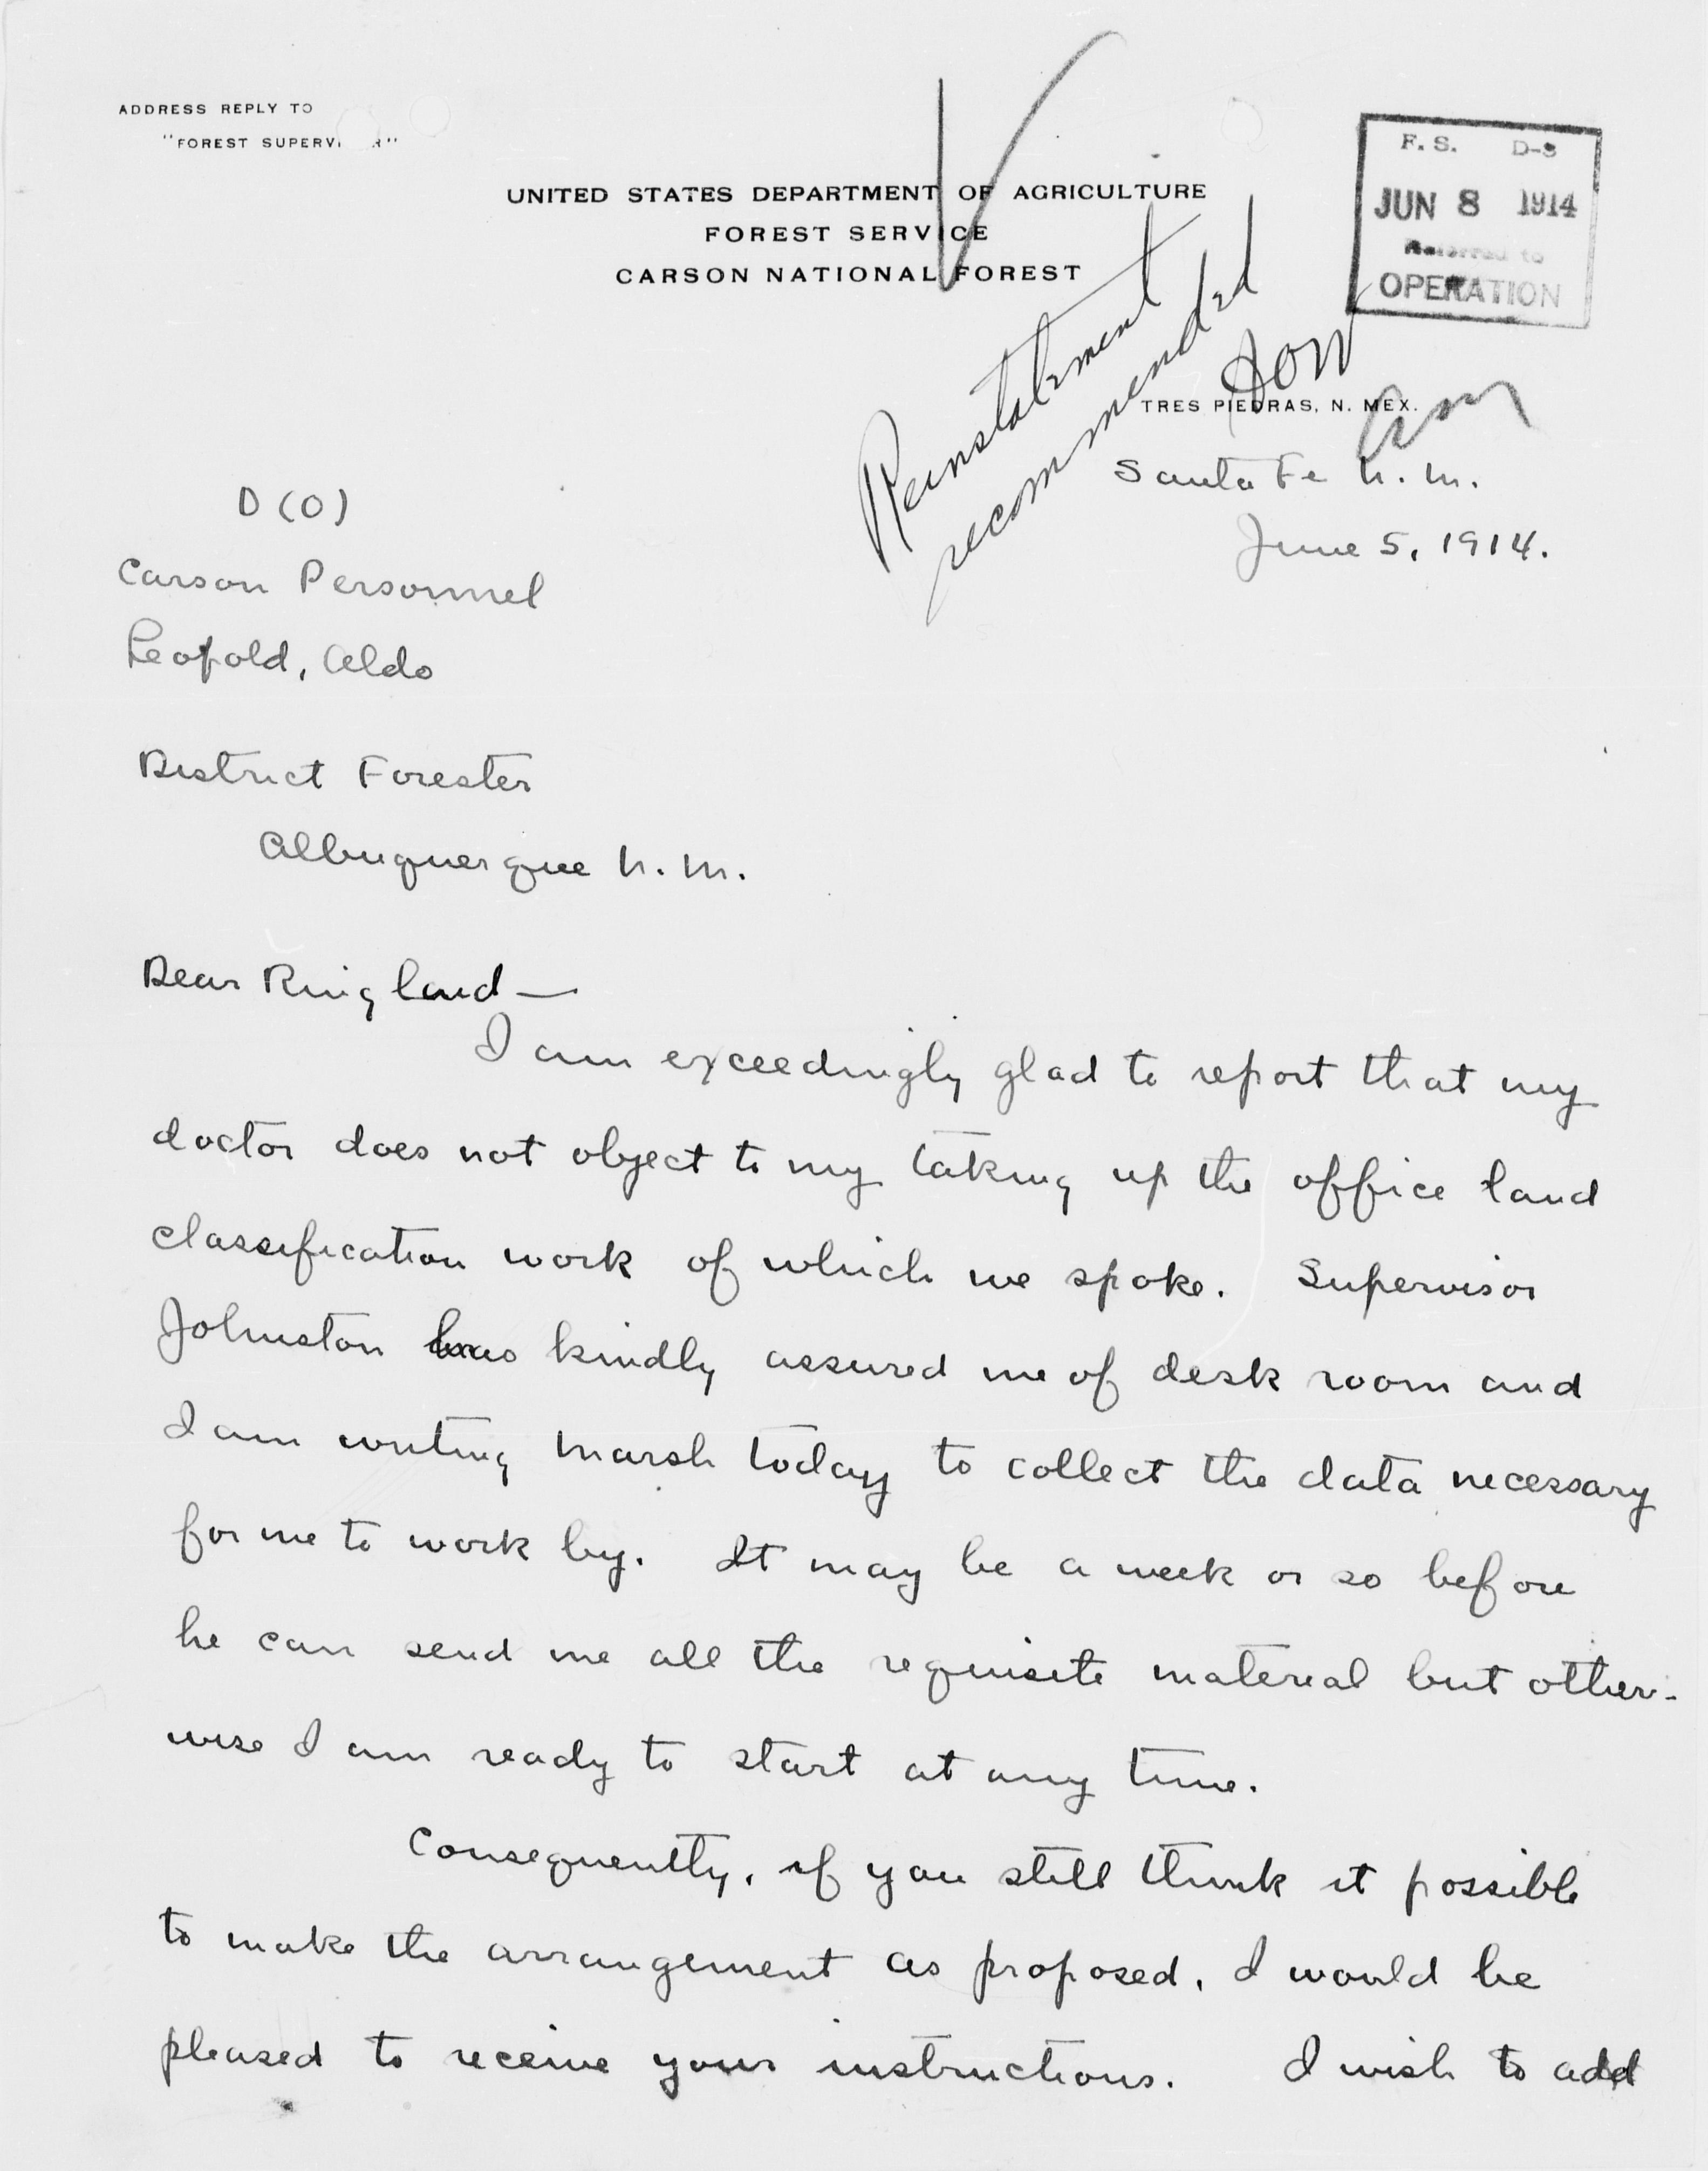 ADDRESS REPLY TO
"FOREST SUPERVI R"
UNITED STATES DEPARTMENT OF AGRICULTURE
FOREST SERVICE
CARSON NATIONAL FOREST
F. S. D-3
JUN 8 1914
Referred to
OPERATION
Reinstatement
recommended
TRES PIEDRAS, N. MEX.
Santa Fe N. M.
June 5, 1914.
D (O)
Carson Personnel
Leopold, Aldo
District Forester
Albuquerque N. M.
Dear Ringland —
I am exceedingly glad to report that my
doctor does not object to my taking up the office land
classification work of which we spoke. Supervisor
Johnston has kindly assured me of desk room and
I am writing Marsh today to collect the data necessary
for me to work by. It may be a week or so before
he can send me all the requisite material but other-
wise I am ready to start at any time.
Consequently, if you still think it possible
to make the arrangement as proposed, I would be
pleased to receive your instructions. I wish to add